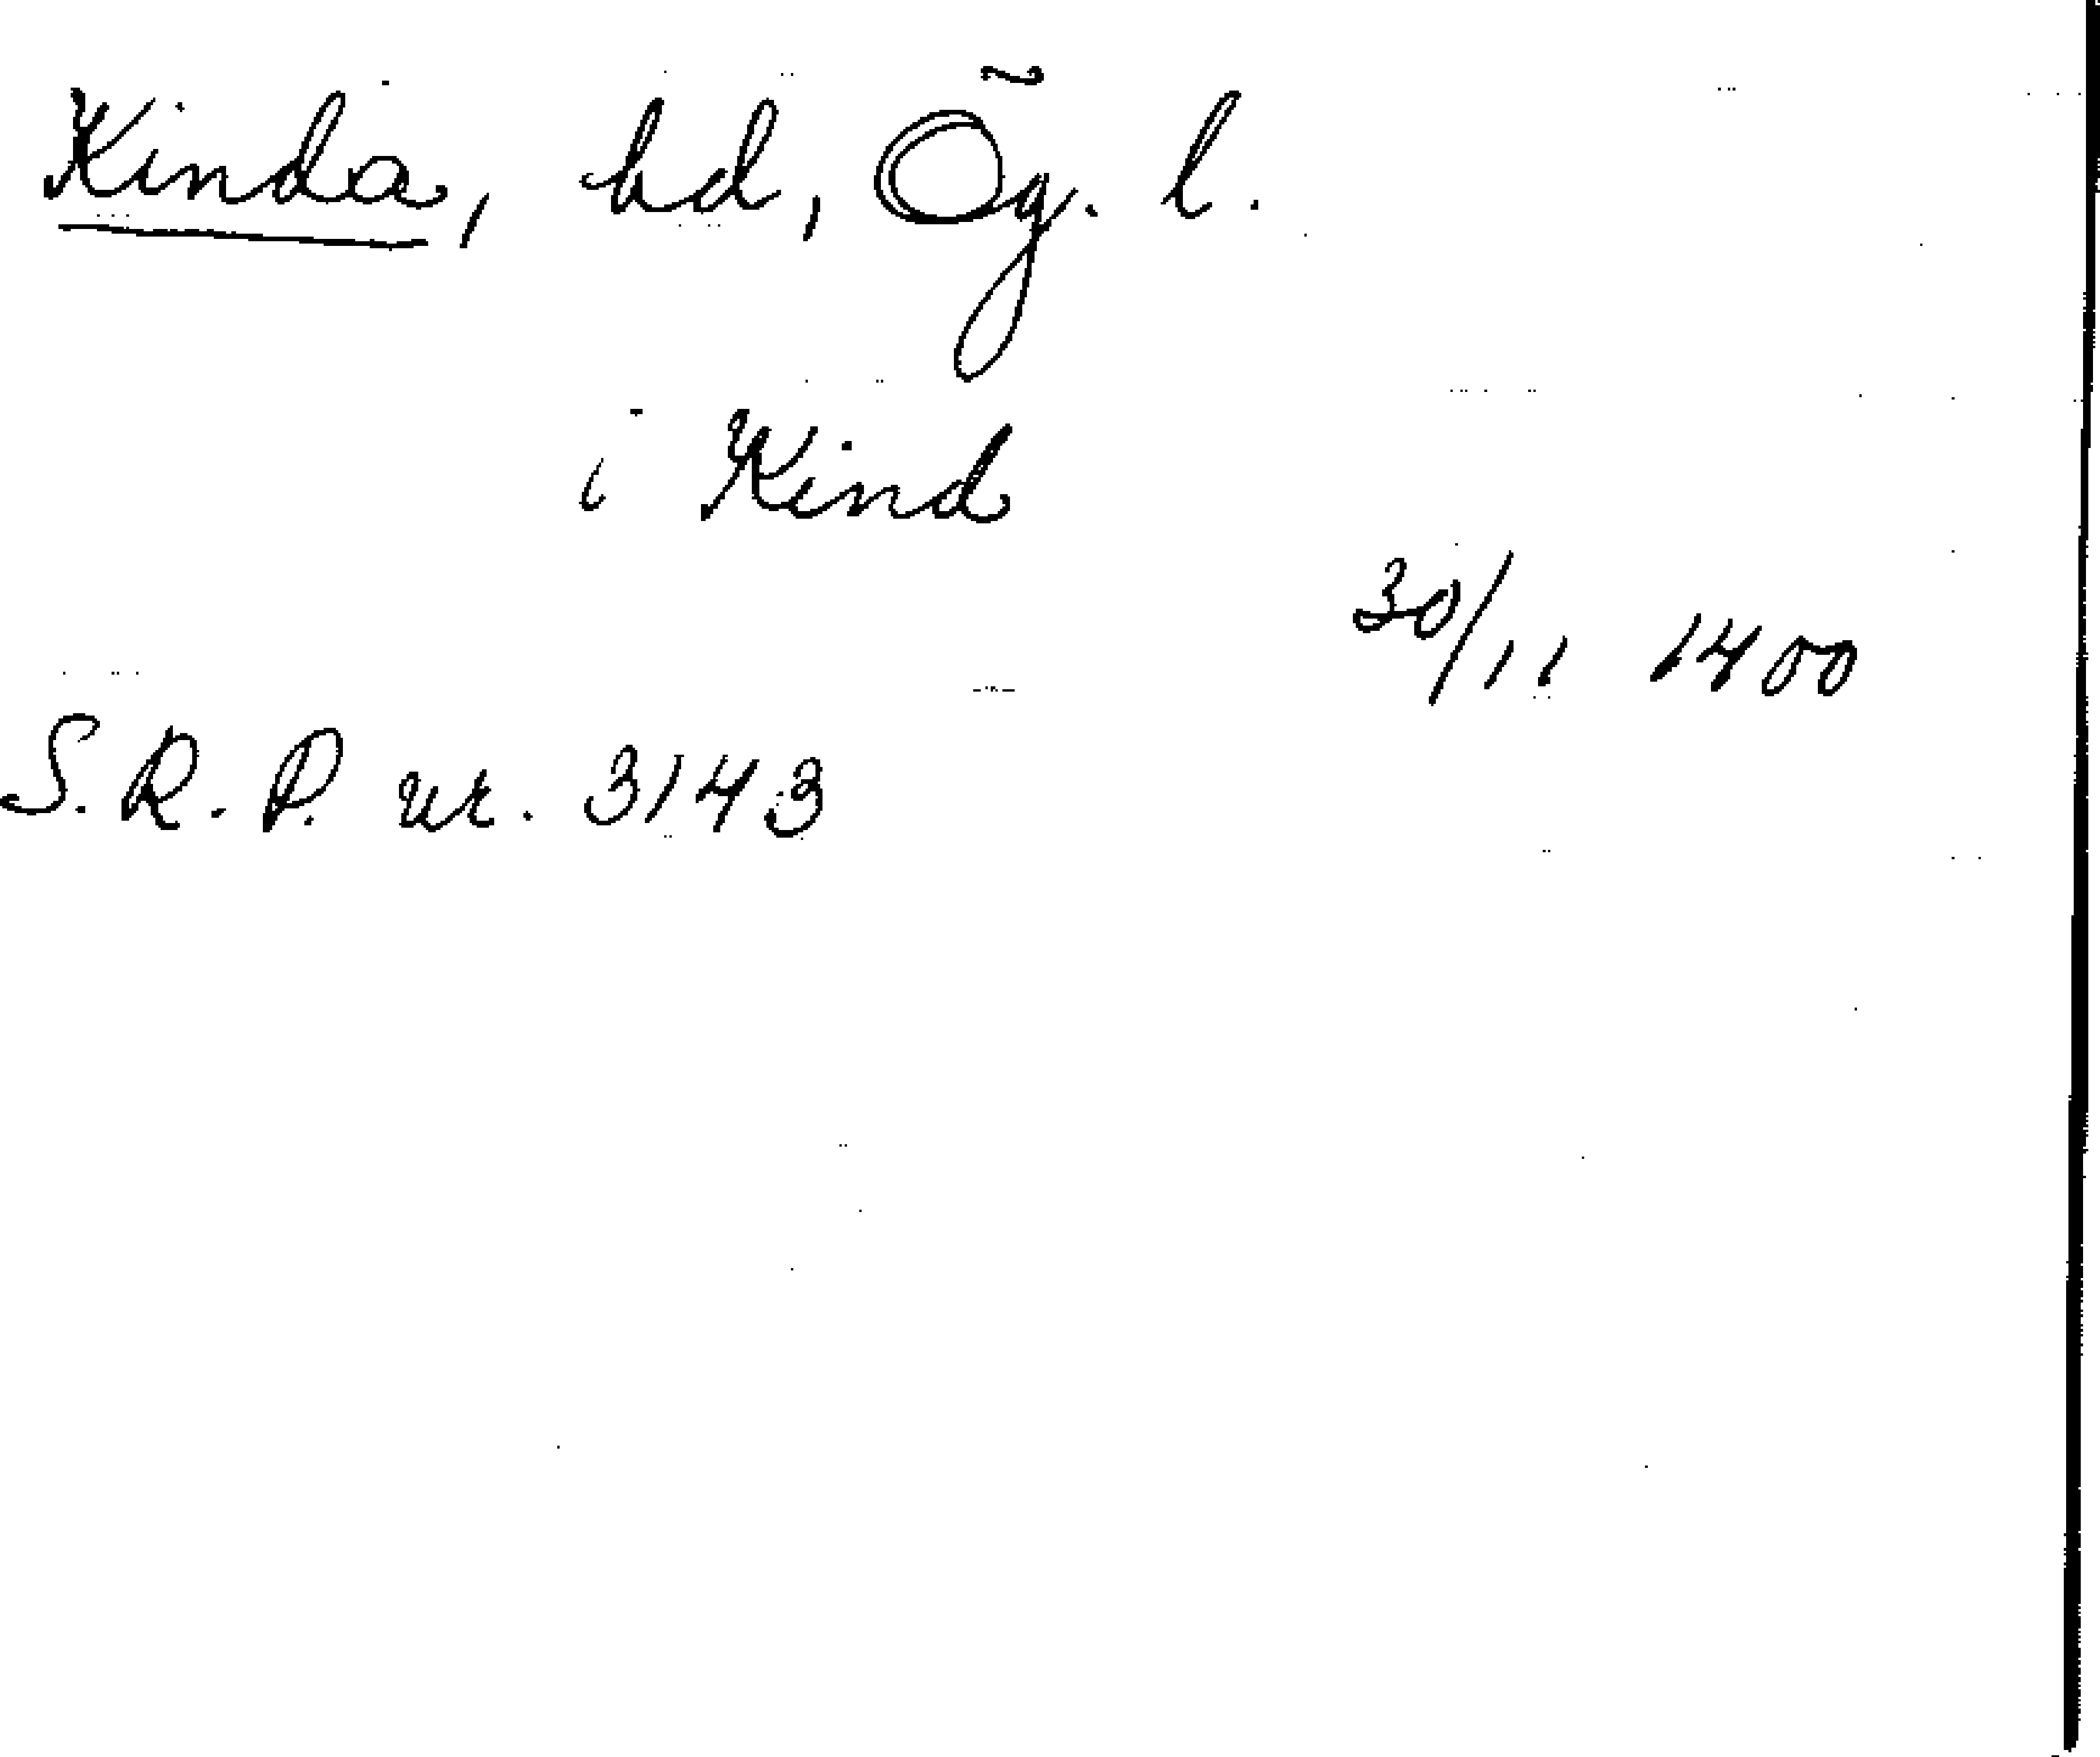 Kinda, hd, Ög. l.
i Kind
30/11 1400
S. R. P. nr. 3143